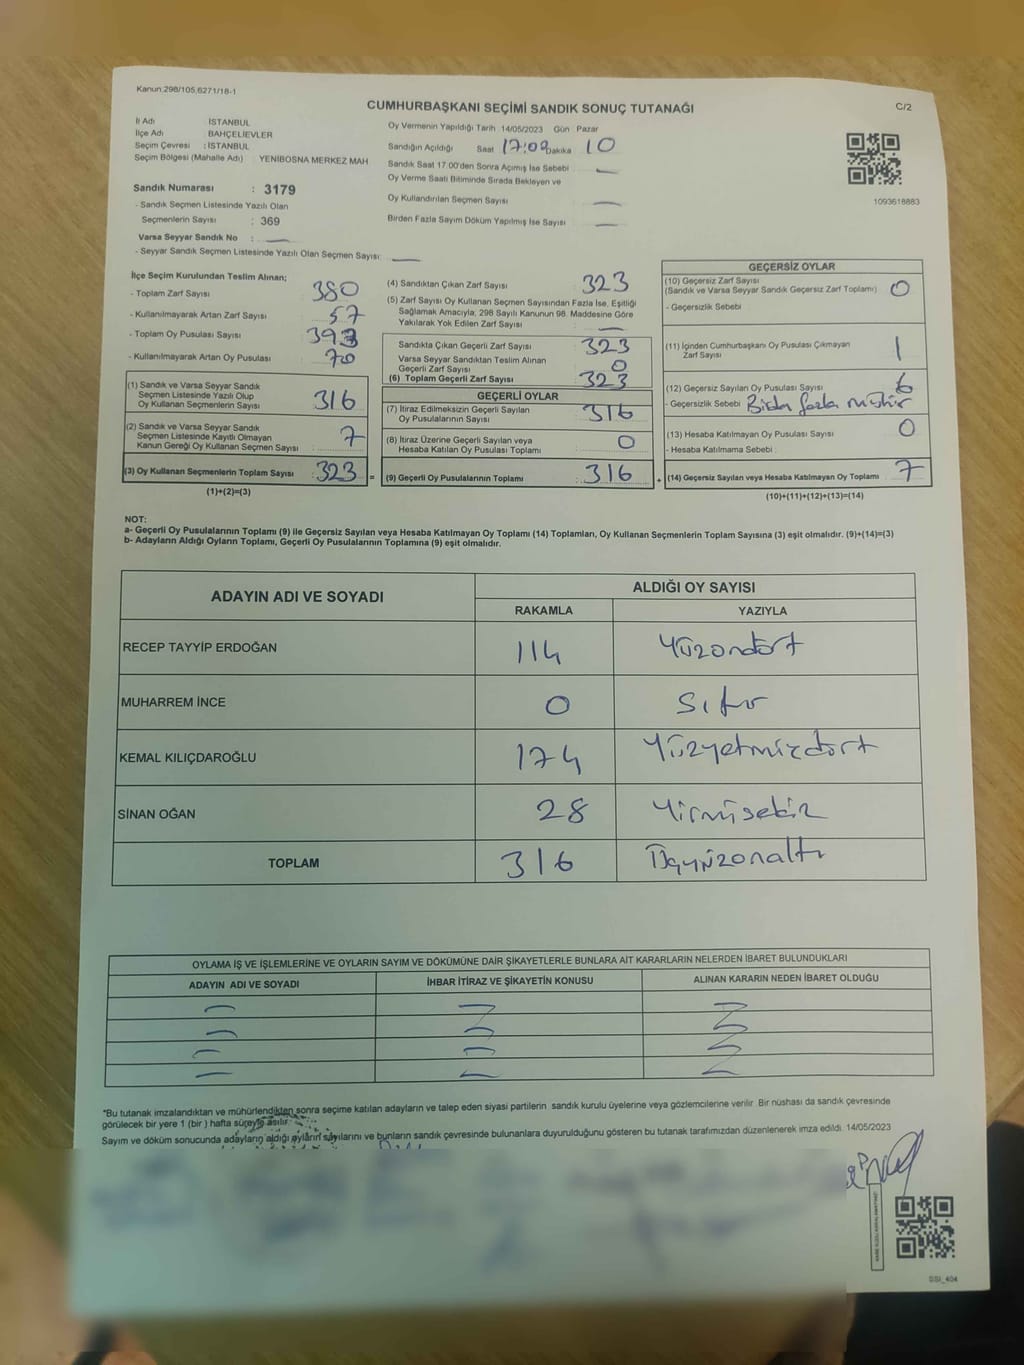 Kanun.298/105,6271/18-1
CUMHURBAŞKANI SEÇİMİ SANDIK SONUÇ TUTANAĞI
C/2
İl Adı : İSTANBUL
İlçe Adı : BAHÇELİEVLER
Seçim Çevresi : İSTANBUL
Seçim Bölgesi (Mahalle Adı) : YENİBOSNA MERKEZ MAH
Sandık Numarası : 3179
- Sandık Seçmen Listesinde Yazılı Olan
Seçmenlerin Sayısı : 369
Varsa Seyyar Sandık No : —
- Seyyar Sandık Seçmen Listesinde Yazılı Olan Seçmen Sayısı: —
Oy Vermenin Yapıldığı Tarih 14/05/2023 Gün Pazar
Sandığın Açıldığı Saat 17:00 Dakika 10
Sandık Saat 17.00'den Sonra Açımış İse Sebebi —
Oy Verme Saati Bitiminde Sırada Bekleyen ve
Oy Kullandırılan Seçmen Sayısı —
Birden Fazla Sayım Döküm Yapılmış İse Sayısı —
1093618883
İlçe Seçim Kurulundan Teslim Alınan;
- Toplam Zarf Sayısı 380
- Kullanılmayarak Artan Zarf Sayısı 57
- Toplam Oy Pusulası Sayısı 393
- Kullanılmayarak Artan Oy Pusulası 70
(1) Sandık ve Varsa Seyyar Sandık
Seçmen Listesinde Yazılı Olup
Oy Kullanan Seçmenlerin Sayısı 316
(2) Sandık ve Varsa Seyyar Sandık
Seçmen Listesinde Kayıtlı Olmayan
Kanun Gereği Oy Kullanan Seçmen Sayısı 7
(3) Oy Kullanan Seçmenlerin Toplam Sayısı 323 =
(1)+(2)=(3)
(4) Sandıktan Çıkan Zarf Sayısı 323
(5) Zarf Sayısı Oy Kullanan Seçmen Sayısından Fazla İse, Eşitliği
Sağlamak Amacıyla, 298 Sayılı Kanunun 98. Maddesine Göre
Yakılarak Yok Edilen Zarf Sayısı —
Sandıkta Çıkan Geçerli Zarf Sayısı 323
Varsa Seyyar Sandıktan Teslim Alınan
Geçerli Zarf Sayısı 0
(6) Toplam Geçerli Zarf Sayısı 323
GEÇERLİ OYLAR
(7) İtiraz Edilmeksizin Geçerli Sayılan
Oy Pusulalarının Sayısı 316
(8) İtiraz Üzerine Geçerli Sayılan veya
Hesaba Katılan Oy Pusulası Toplamı 0
(9) Geçerli Oy Pusulalarının Toplamı 316 +
GEÇERSİZ OYLAR
(10) Geçersiz Zarf Sayısı
(Sandık ve Varsa Seyyar Sandık Geçersiz Zarf Toplamı) 0
- Geçersizlik Sebebi :
(11) İçinden Cumhurbaşkanı Oy Pusulası Çıkmayan
Zarf Sayısı 1
(12) Geçersiz Sayılan Oy Pusulası Sayısı 6
- Geçersizlik Sebebi : Birden fazla mühür
(13) Hesaba Katılmayan Oy Pusulası Sayısı 0
- Hesaba Katılmama Sebebi :
(14) Geçersiz Sayılan veya Hesaba Katılmayan Oy Toplamı 7
(10)+(11)+(12)+(13)=(14)
NOT:
a- Geçerli Oy Pusulalarının Toplamı (9) ile Geçersiz Sayılan veya Hesaba Katılmayan Oy Toplamı (14) Toplamları, Oy Kullanan Seçmenlerin Toplam Sayısına (3) eşit olmalıdır. (9)+(14)=(3)
b- Adayların Aldığı Oyların Toplamı, Geçerli Oy Pusulalarının Toplamına (9) eşit olmalıdır.
ADAYIN ADI VE SOYADI
ALDIĞI OY SAYISI
RAKAMLA YAZIYLA
RECEP TAYYİP ERDOĞAN 114 Yüzondört
MUHARREM İNCE 0 Sıfır
KEMAL KILIÇDAROĞLU 174 Yüzyetmişdört
SİNAN OĞAN 28 Yirmisekiz
TOPLAM 316 Üçyüzonaltı
OYLAMA İŞ VE İŞLEMLERİNE VE OYLARIN SAYIM VE DÖKÜMÜNE DAİR ŞİKAYETLERLE BUNLARA AİT KARARLARIN NELERDEN İBARET BULUNDUKLARI
ADAYIN ADI VE SOYADI İHBAR İTİRAZ VE ŞİKAYETİN KONUSU ALINAN KARARIN NEDEN İBARET OLDUĞU
*Bu tutanak imzalandıktan ve mühürlendikten sonra seçime katılan adayların ve talep eden siyasi partilerin sandık kurulu üyelerine veya gözlemcilerine verilir. Bir nüshası da sandık çevresinde
görülecek bir yere 1 (bir) hafta süreyle asılır.
Sayım ve döküm sonucunda adayların aldığı oyların sayılarını ve bunların sandık çevresinde bulunanlara duyurulduğunu gösteren bu tutanak tarafımızdan düzenlenerek imza edildi. 14/05/2023
GSI_404